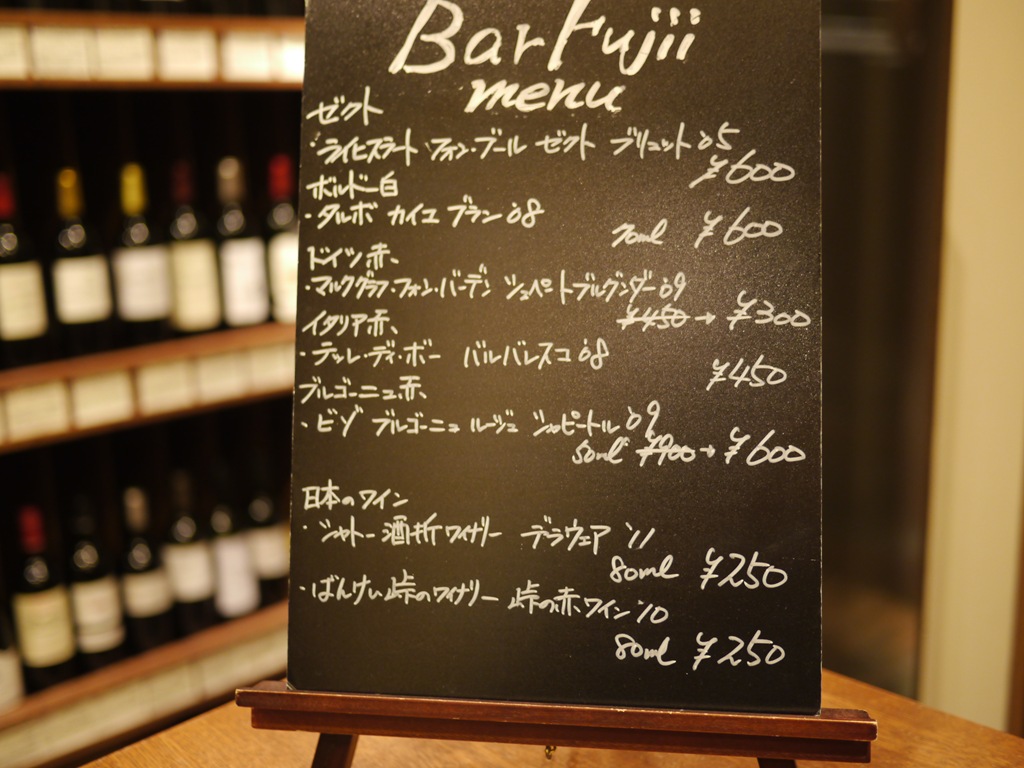 Bar Fujii
menu
ゼクト
・ライヒスラート フォン・ブール ゼクト ブリュット '05
¥600
ボルドー白
・タルボ カイユ ブラン '08
70ml ¥600
ドイツ赤、
・マルクグラフ・フォン・バーデン シュペートブルグンダー '09
¥450→¥300
イタリア赤、
・テッレ・ディ・ボー バルバレスコ '08
¥450
ブルゴーニュ赤、
・ビゾ ブルゴーニュ ルージュ シャピートル '09
50ml ¥900→¥600
日本のワイン
・シャトー酒折ワイナリー デラウェア '11
80ml ¥250
・ばんけい峠のワイナリー 峠の赤ワイン '10
80ml ¥250